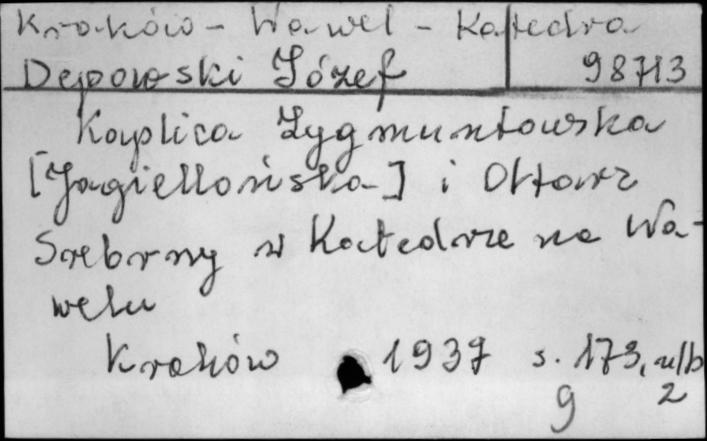 Kraków - Wawel - Katedra
Depowski Józef 98713
Kaplica Zygmuntowska
[Jagiellońska] i Ołtarz
Srebrny w Katedrze na Wa-
welu
Kraków 1937 s. 173, nlb
9 2